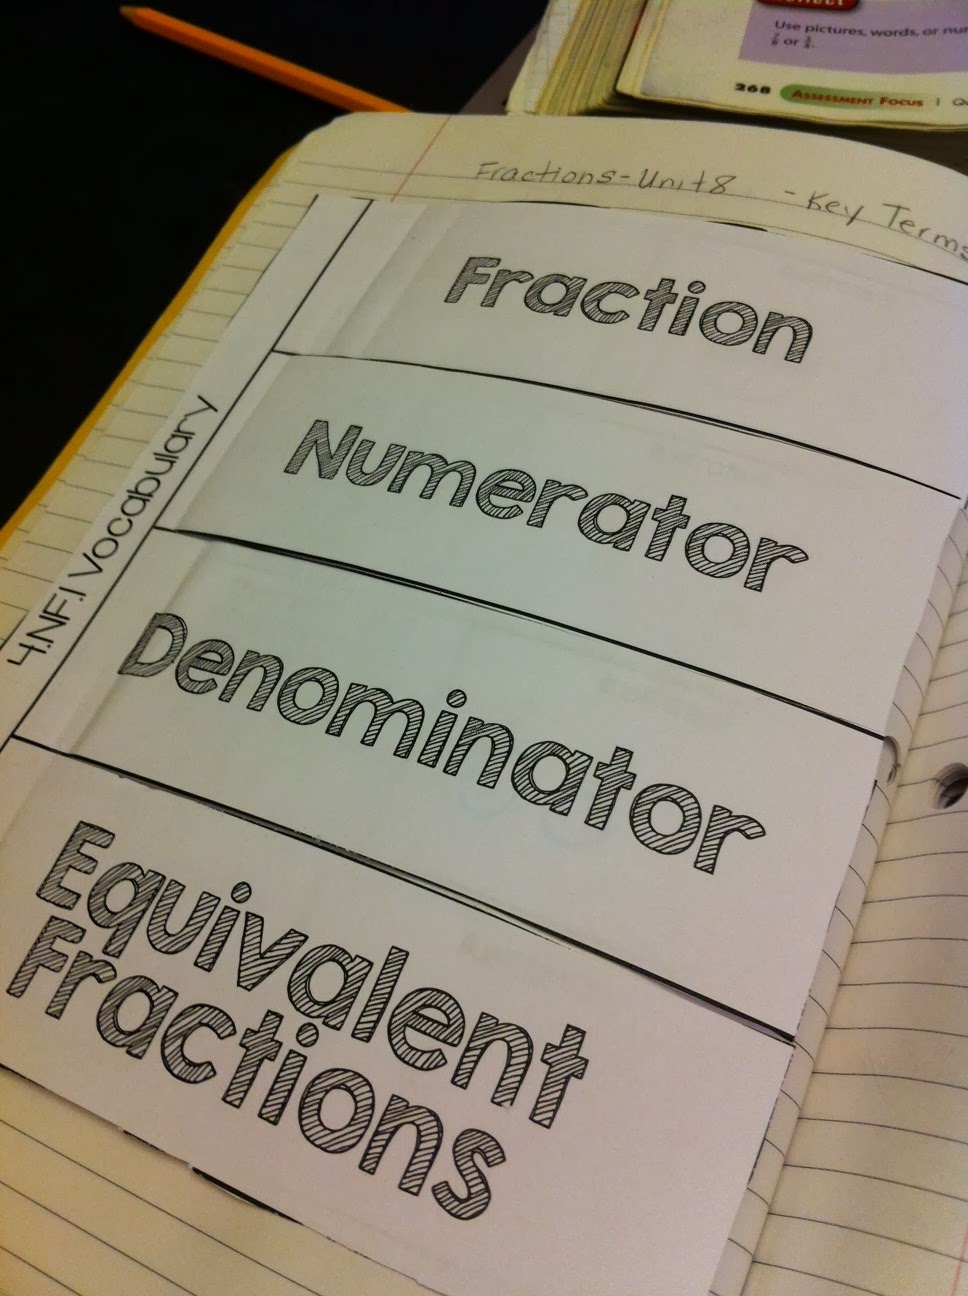 Use pictures, words, or
7/8 or 3/4.
268 ASSESSMENT FOCUS |
Fractions-Unit 8 - Key Terms
4.NF.1 Vocabulary
Fraction
Numerator
Denominator
Equivalent
Fractions